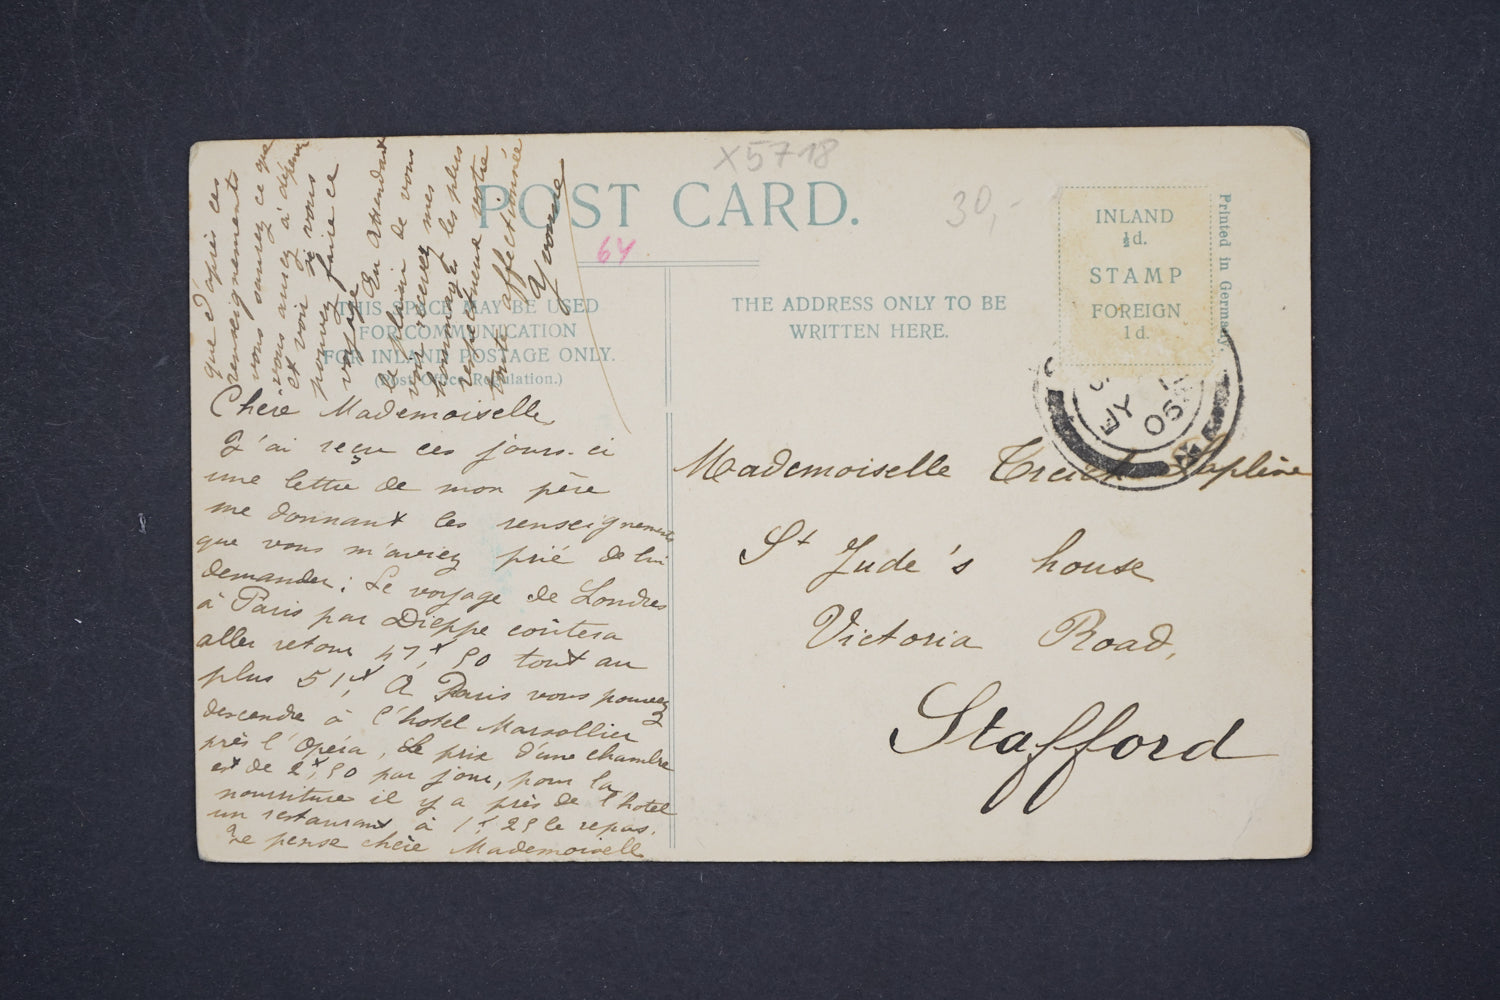 X5718
POST CARD.
30,-
64
INLAND
½d.
STAMP
FOREIGN
1d.
Printed in Germany.
THIS SPACE MAY BE USED
FOR COMMUNICATION
FOR INLAND POSTAGE ONLY.
(Post Office Regulation.)
THE ADDRESS ONLY TO BE
WRITTEN HERE.
JY
05
Chère Mademoiselle
J'ai reçu ces jours-ci
une lettre de mon père
me donnant les renseignements
que vous m'aviez prié de lui
demander: Le voyage de Londres
à Paris par Dieppe coûtera
aller retour 47f,50 tout au
plus 51f. A Paris vous pouvez
descendre à l'hotel Marsollier
près l'Opéra, Le prix d'une chambre
est de 2f,50 par jour, pour la
nourriture il y a près de l'hotel
un restaurant à 1f,25 le repas.
Je pense chère Mademoiselle
que d'après ces
renseignements
vous saurez ce que
vous aurez à dépenser
et voir si vous
pouvez faire ce
voyage. En attendant
le plaisir de vous
voir recevez mes
hommages les plus
respectueux votre
toute affectionnée
Yvonne
Mademoiselle
St Jude's house
Victoria Road,
Stafford